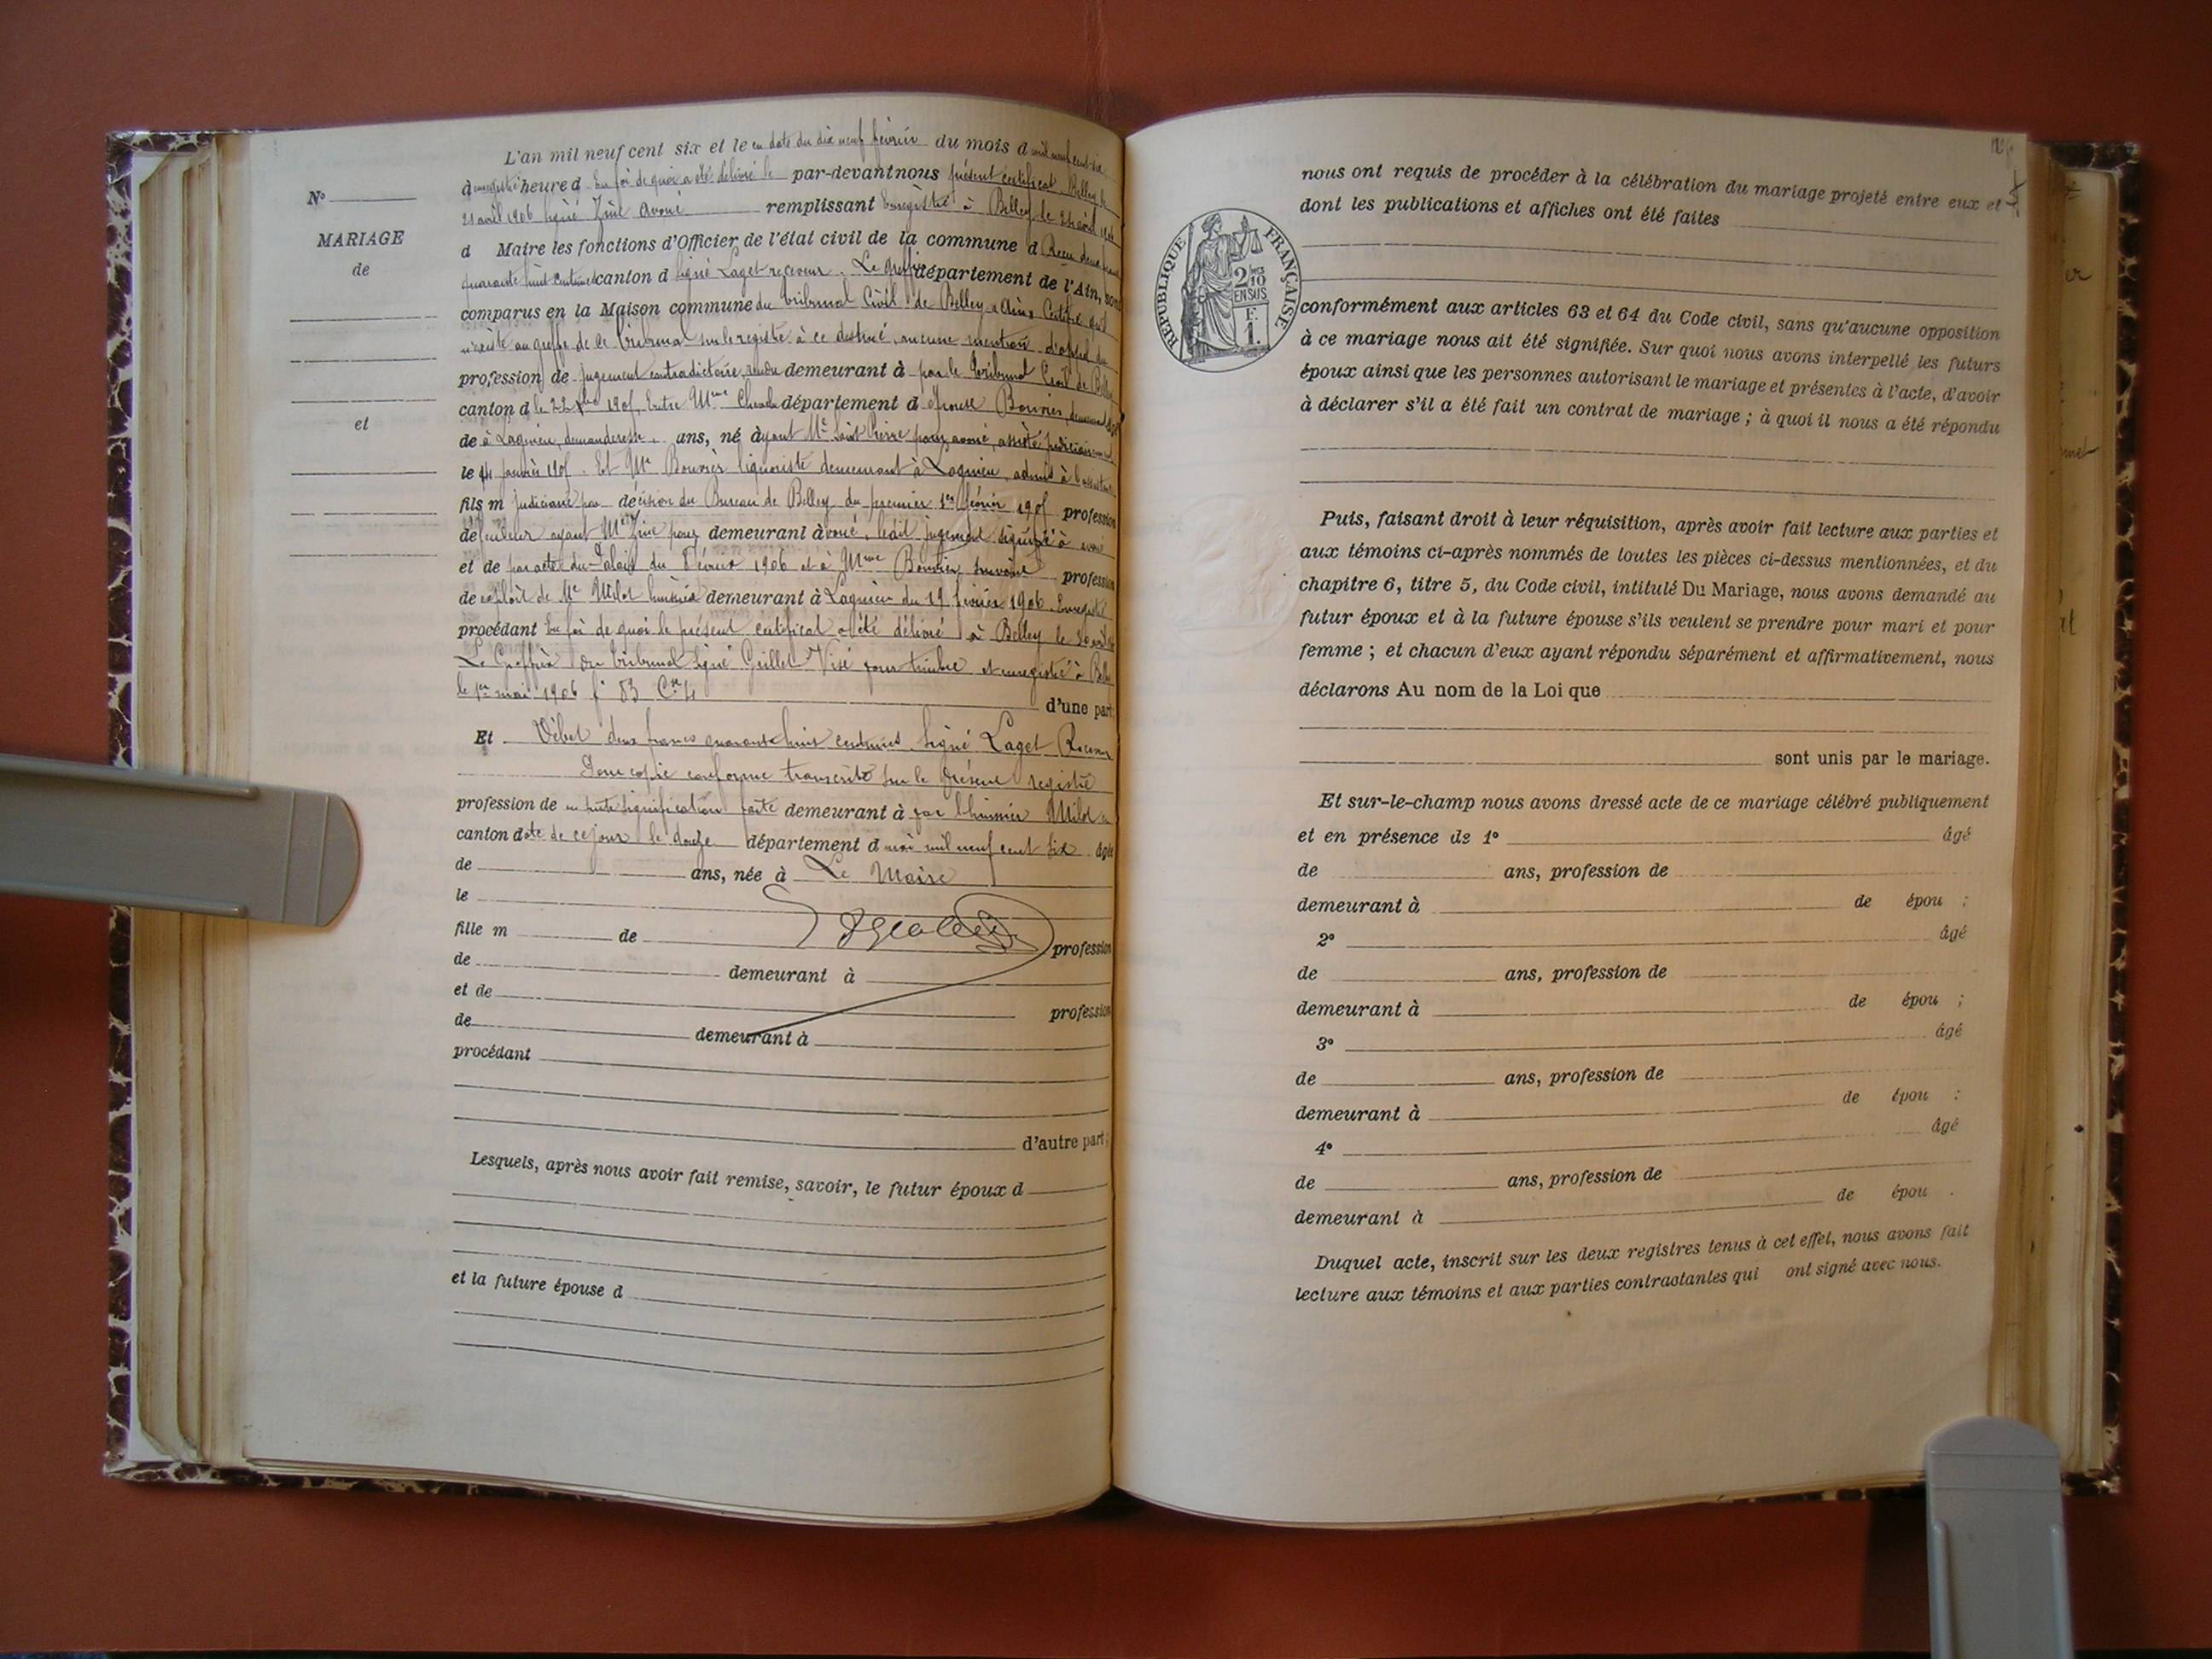 L'an mil neuf cent six et le en date du dix neuf février du mois d mil neuf cent six
d enregistré heure d En foi de quoi a été délivré le par-devant nous présent certificat Belley le
21 avril 1906 signé Zine avoué remplissant Enregistré à Belley le
d Maire les fonctions d'Officier de l'état civil de la commune d Reçu deux francs
quarante huit centimes canton d signé Laget receveur. Le greffier département de l'Ain, sont
comparus en la Maison commune du tribunal Civil de Belley Ain Certifie qu'il
n'existe au greffe de ce tribunal sur le registre à ce destiné, aucune mention d'appel du
profession de jugement contradictoire, rendu demeurant à par le tribunal Civil de Belley
canton d le 22 Xbre 1905, Entre Mme département d épouse Bouvier,
de à Lagnieu, demanderesse, ans, né ayant Me Saint Pierre pour avoué, assisté judiciairement
le 14 janvier 1905. Et Mr Bouvier liquoriste demeurant à Lagnieu, admis à l'assistance
fils m judiciaire par décision du Bureau de Belley du premier 1er février 1905 profession
défendeur ayant Me Zine pour demeurant à avoué, ledit jugement signifié à avoué
et de par acte du Palais du février 1906 et à Mme Bouvier suivant profession
de exploit de Me Milot huissier demeurant à Lagnieu du 19 février 1906. Enregistré
procédant En foi de quoi le présent certificat a été délivré à Belley le 20 avril
Le Greffier du tribunal signé Grillet Visé pour timbre et enregistré à Belley
le 1er mai 1906 f° 83 Ce 4 d'une part
Et Débet deux francs quarante huit centimes. Signé Laget Receveur
Pour copie conforme transcrite sur le présent registre
profession de signification faite demeurant à par l'huissier Milot en
canton date de ce jour le douze département d mai mil neuf cent six âgée
de ans, née à Le Maire
le
fille m de profession
de demeurant à
et de profession
de demeurant à
procédant
d'autre part;
Lesquels, après nous avoir fait remise, savoir, le futur époux d
et la future épouse d
N°
MARIAGE
de
et
nous ont requis de procéder à la célébration du mariage projeté entre eux et
dont les publications et affiches ont été faites
RÉPUBLIQUE FRANÇAISE
2/10
EN SUS
F.
1.
conformément aux articles 63 et 64 du Code civil, sans qu'aucune opposition
à ce mariage nous ait été signifiée. Sur quoi nous avons interpellé les futurs
époux ainsi que les personnes autorisant le mariage et présentes à l'acte, d'avoir
à déclarer s'il a été fait un contrat de mariage ; à quoi il nous a été répondu
Puis, faisant droit à leur réquisition, après avoir fait lecture aux parties et
aux témoins ci-après nommés de toutes les pièces ci-dessus mentionnées, et du
chapitre 6, titre 5, du Code civil, intitulé Du Mariage, nous avons demandé au
futur époux et à la future épouse s'ils veulent se prendre pour mari et pour
femme ; et chacun d'eux ayant répondu séparément et affirmativement, nous
déclarons Au nom de la Loi que
sont unis par le mariage.
Et sur-le-champ nous avons dressé acte de ce mariage célébré publiquement
et en présence de 1° âgé
de ans, profession de
demeurant à de épou ;
2° âgé
de ans, profession de
demeurant à de épou ;
3° âgé
de ans, profession de
demeurant à de épou :
4° âgé
de ans, profession de
demeurant à de épou .
Duquel acte, inscrit sur les deux registres tenus à cet effet, nous avons fait
lecture aux témoins et aux parties contractantes qui ont signé avec nous.